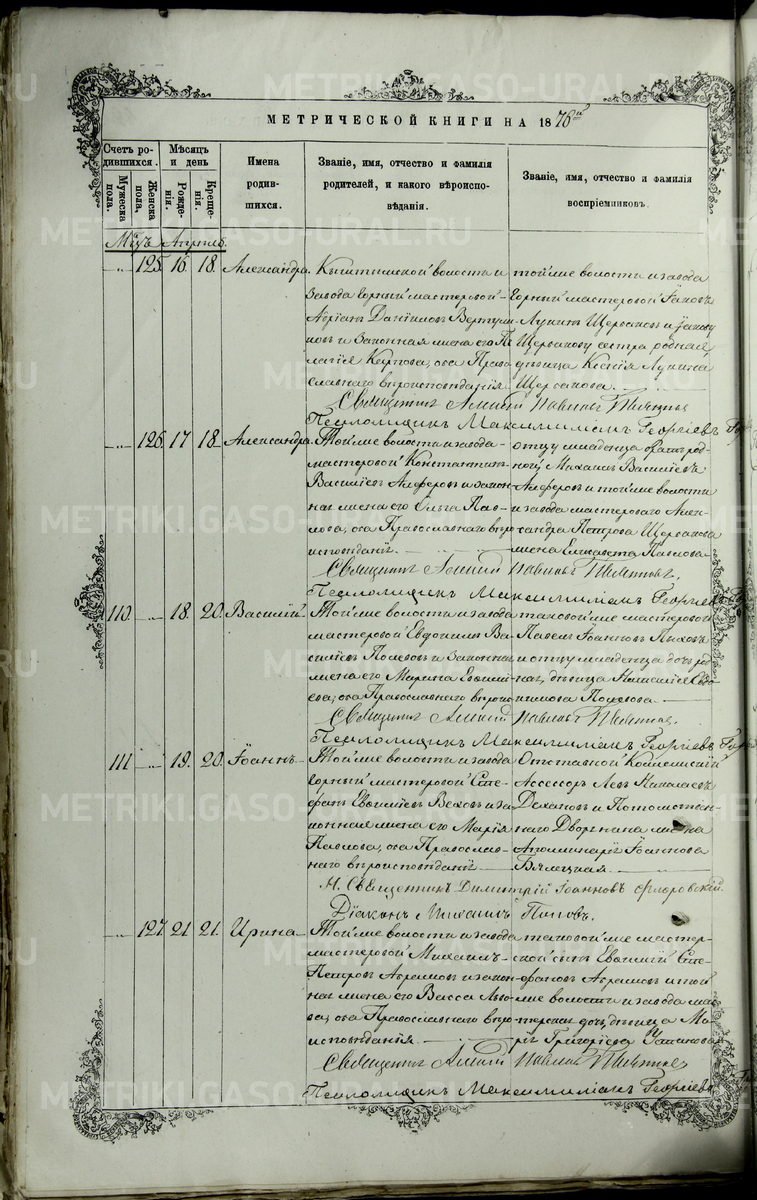 МЕТРИЧЕСКОЙ КНИГИ НА 1876й
Счетъ родившихся.
Мужеска пола.
Женска пола,
Мѣсяцъ и день
Рожденія.
Крещенія.
Имена родившихся.
Званіе, имя, отчество и фамилія родителей, и какого вѣроисповѣданія.
Званіе, имя, отчество и фамилія воспріемниковъ.
Мцъ Апрель.
125. 16. 18. Александра.
Кыштымской волости и
завода горный мастеровой
Адріанъ Даніиловъ Вертуш-
ковъ и законная жена его Пе
лагія Карпова, оба Право
славнаго вѣроисповѣданія
той же волости и завода
Горный мастеровой Іаковъ
Лукинъ Щербаковъ и Іакову
Щербакову сестра родная,
дѣвица Ксенія Лукина
Щербакова.
Священникъ Алексій Павловъ
Псаломщикъ Максимиліанъ Георгіевъ
126. 17 18. Александра.
Той же волости и завода
мастеровой Константинъ
Василіевъ Алферовъ и закон
ная жена его Ольга Пав-
лова, оба Православнаго вѣро
исповѣданія.
отцу младенца братъ род-
ной Михаилъ Василіевъ
Алферовъ и той же волости
и завода мастероваго Алек-
сандра Петрова Щербакова
жена Елисавета Павлова
Священникъ Алексій Павловъ
Псаломщикъ Максимиліанъ Георгіевъ
110 18. 20. Василій
Той же волости и завода
мастеровой Евдокимъ Ва
силіевъ Полевовъ и законная
жена его Марина Евфимі-
ева, оба Православнаго вѣрои
таковой же мастеровой
Павелъ Іоанновъ
и отцу младенца дочь род
ная, дѣвица Анисія Евдо
кимова Полевова
Священникъ Алексій Павловъ
Псаломщикъ Максимиліанъ Георгіевъ
111 19. 20. Іоаннъ
Той же волости и завода
горный мастеровой Сте-
фанъ Евфиміевъ Веховъ и за
конная жена его Марія
Павлова, оба Православ-
наго вѣроисповѣданія
Отставной Коллежскій
Ассесоръ Левъ Николаевъ
Дехановъ и Потомствен-
наго Дворянина жена
Аполинарія Іоаннова
Бялецкая.
И. Священникъ Димитрій Іоанновъ Флоровскій.
Діаконъ Михаилъ Поповъ.
127. 21 21. Ирина
Той же волости и завода
мастеровой Михаилъ
Петровъ Абрамовъ и закон
ная жена его Васса Льво
ва, оба Православнаго вѣро
исповѣданія
таковой же мастер-
ской сынъ Евфимій Сте-
фановъ Абрамовъ и той
же волости и завода мас
терская дочь, дѣвица Ма-
рія Григоріева Устинова
Священникъ Алексій Павловъ
Псаломщикъ Максимиліанъ Георгіевъ
METRIKI.GASO-URAL.RU